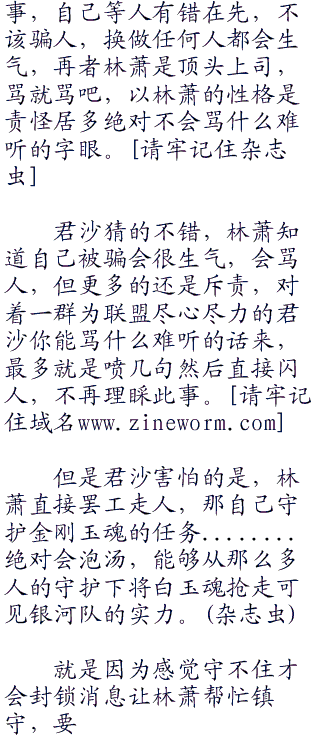 事，自己等人有错在先，不
该骗人，换做任何人都会生
气，再者林萧是顶头上司，
骂就骂吧，以林萧的性格是
责怪居多绝对不会骂什么难
听的字眼。[请牢记住杂志
虫]
君沙猜的不错，林萧知
道自己被骗会很生气，会骂
人，但更多的还是斥责，对
着一群为联盟尽心尽力的君
沙你能骂什么难听的话来，
最多就是喷几句然后直接闪
人，不再理睬此事。[请牢记
住域名www.zineworm.com]
但是君沙害怕的是，林
萧直接罢工走人，那自己守
护金刚玉魂的任务........
绝对会泡汤，能够从那么多
人的守护下将白玉魂抢走可
见银河队的实力。(杂志虫)
就是因为感觉守不住才
会封锁消息让林萧帮忙镇
守，要